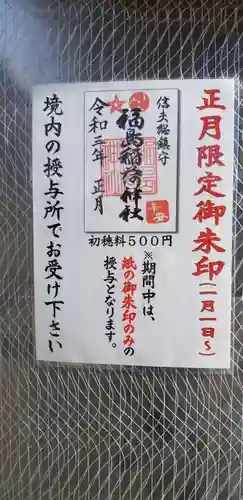 正月限定御朱印(一月一日～)
信夫総鎮守
福島稲荷神社
令和三年 正月
初穂料500円
※期間中は、
紙の御朱印のみの
授与となります。
境内の授与所でお受け下さい